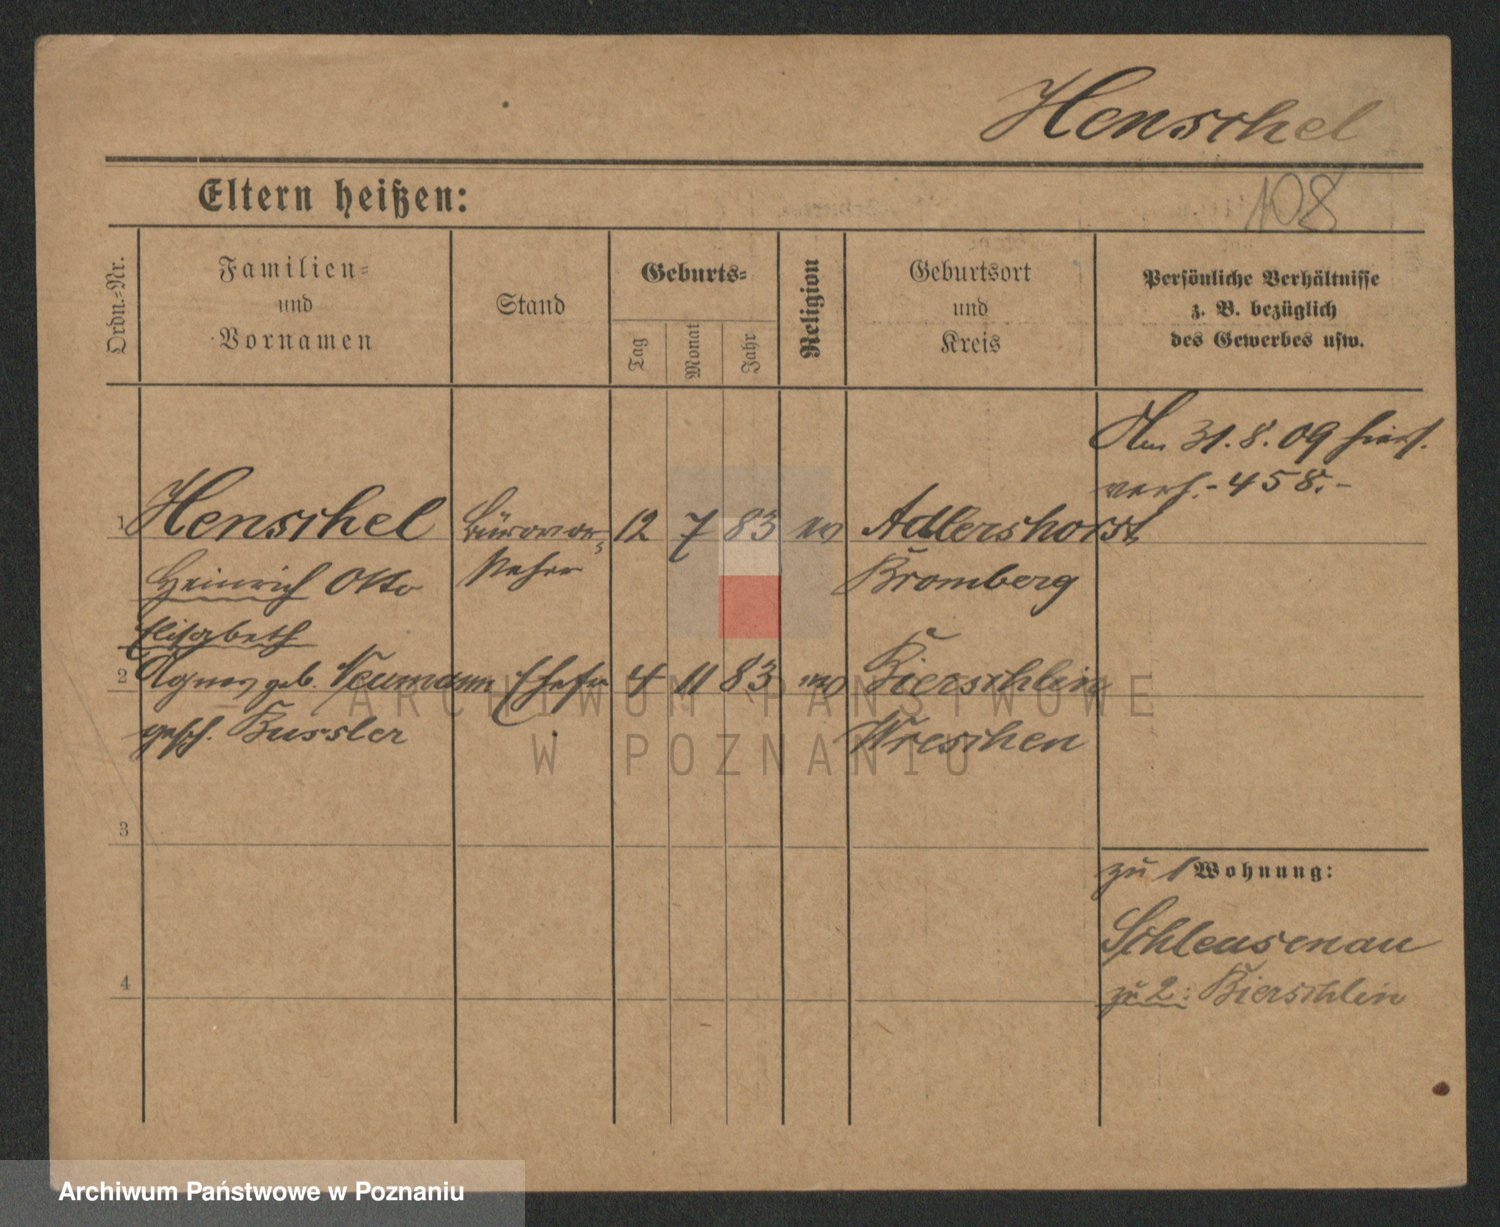 Henschel
Eltern heißen:
108
Ordn.-Nr.
Familien-
und
Vornamen
Stand
Geburts-
Tag
Monat
Jahr
Religion
Geburtsort
und
Kreis
Persönliche Verhältnisse
z. B. bezüglich
des Gewerbes usw.
Am 31.8.09 hier
verh. - 458. -
1 Henschel Bürovor- 12 7 83 ev Adlershorst
Heinrich Otto steher Bromberg
Elisabeth
2 Agnes geb. Neumann Ehefr 4 11 83 ev Bierschlin
gesch. Bussler Wreschen
ARCHIWUM PAŃSTWOWE
W POZNANIU
3
zu 1 Wohnung:
Schleusenau
4 zu 2: Bierschlin
Archiwum Państwowe w Poznaniu